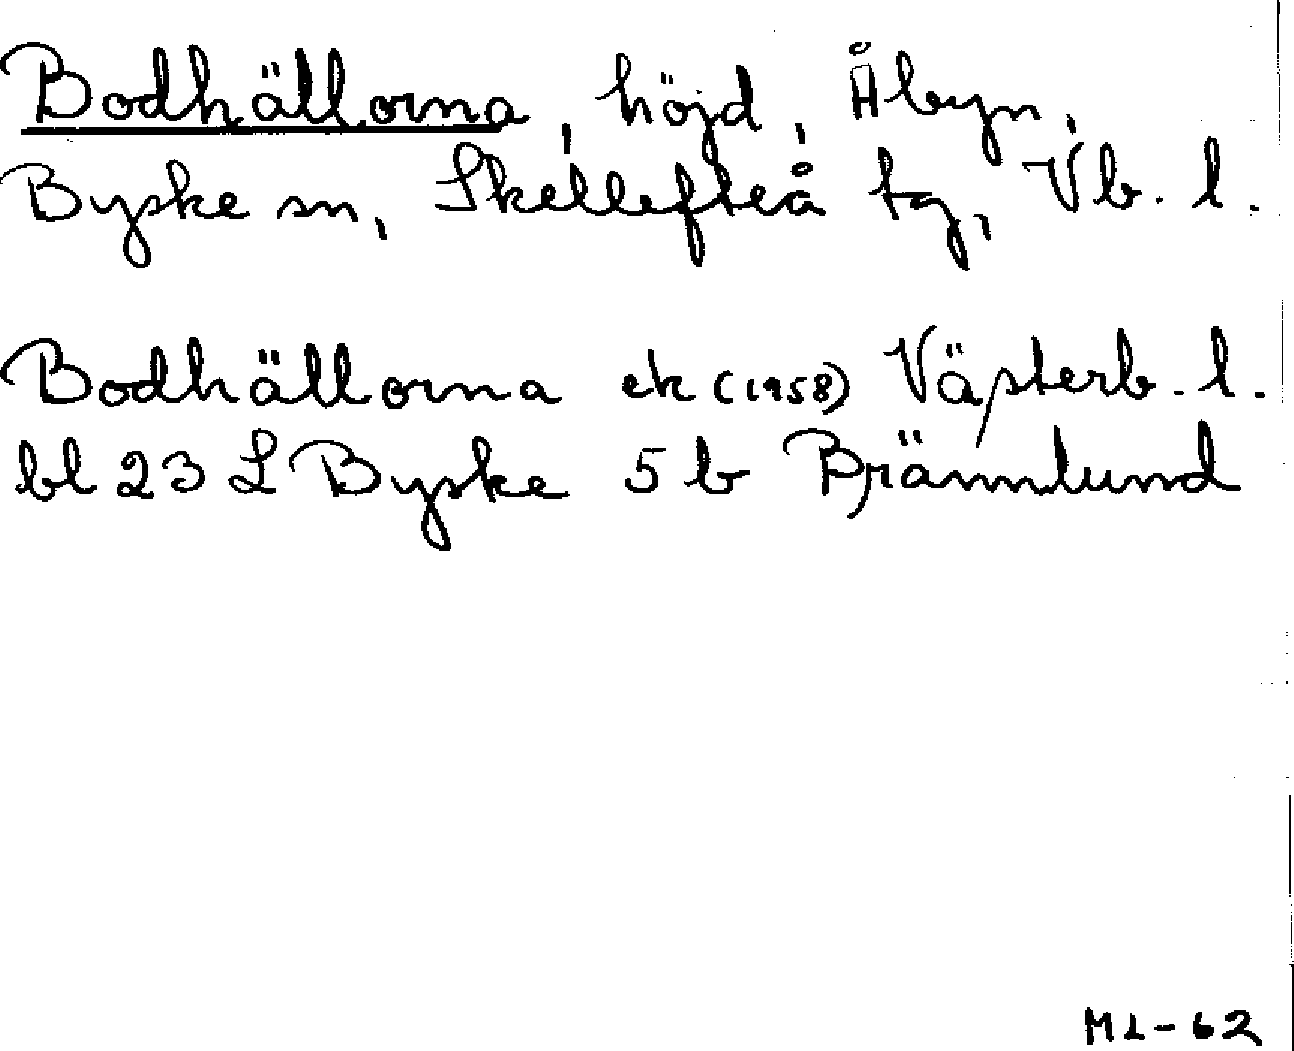 Bodhällorna, höjd, Åbyn,
Byske sn, Skellefteå tg, Vb. l.
Bodhällorna ek (1958) Västerb. l.
bl 23 L Byske 5 b Brännlund
ML-62